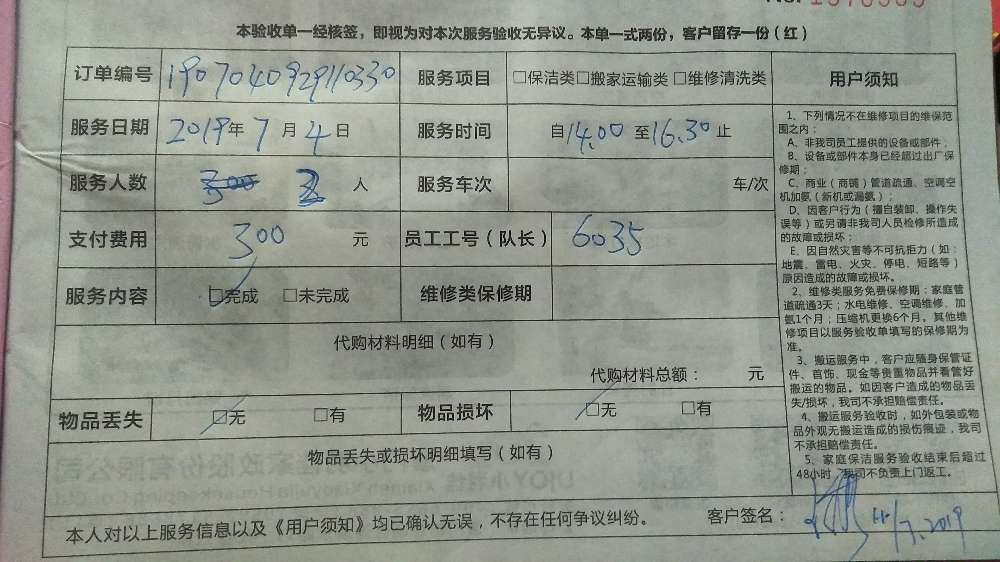 本验收单一经核签，即视为对本次服务验收无异议。本单一式两份，客户留存一份（红）
订单编号 190704092910330 服务项目 □保洁类□搬家运输类□维修清洗类 用户须知
服务日期 2019年7月4日 服务时间 自14.00至16.30止
服务人数 2人 服务车次 车/次
支付费用 300元 员工工号（队长） 6035
服务内容 □完成 □未完成 维修类保修期
代购材料明细（如有）
代购材料总额： 元
物品丢失 □无 □有 物品损坏 □无 □有
物品丢失或损坏明细填写（如有）
1、下列情况不在维修项目的维保范
围之内：
A、非我司员工提供的设备或部件；
B、设备或部件本身已经超过出厂保
修期；
C、商业（商铺）管道疏通、空调空
机加氨（新机或漏氨）；
D、因客户行为（擅自装卸、操作失
误等）或另请非我司人员检修所造成
的故障或损坏；
E、因自然灾害等不可抗拒力（如：
地震、雷电、火灾、停电、短路等）
原因造成的故障或损坏。
2、维修类服务免费保修期：家庭管
道疏通3天；水电维修、空调维修、加
氨1个月；压缩机更换6个月。其他维
修项目以服务验收单填写的保修期为
准。
3、搬运服务中，客户应随身保管证
件、首饰、现金等贵重物品并看管好
搬运的物品。如因客户造成的物品丢
失/损坏，我司不承担赔偿责任。
4、搬运服务验收时，如外包装或物
品外观无搬运造成的损伤痕迹，我司
不承担赔偿责任。
5、家庭保洁服务验收结束后超过
48小时，我司不负责上门返工。
本人对以上服务信息以及《用户须知》均已确认无误，不存在任何争议纠纷。 客户签名：